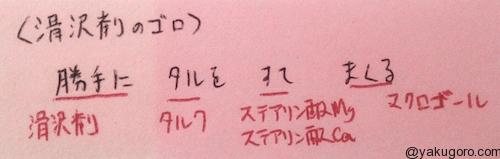 〈滑沢剤のゴロ〉
勝手に タルを すて まくる
滑沢剤 タルク ステアリン酸Mg マクロゴール
ステアリン酸Ca
@yakugoro.com